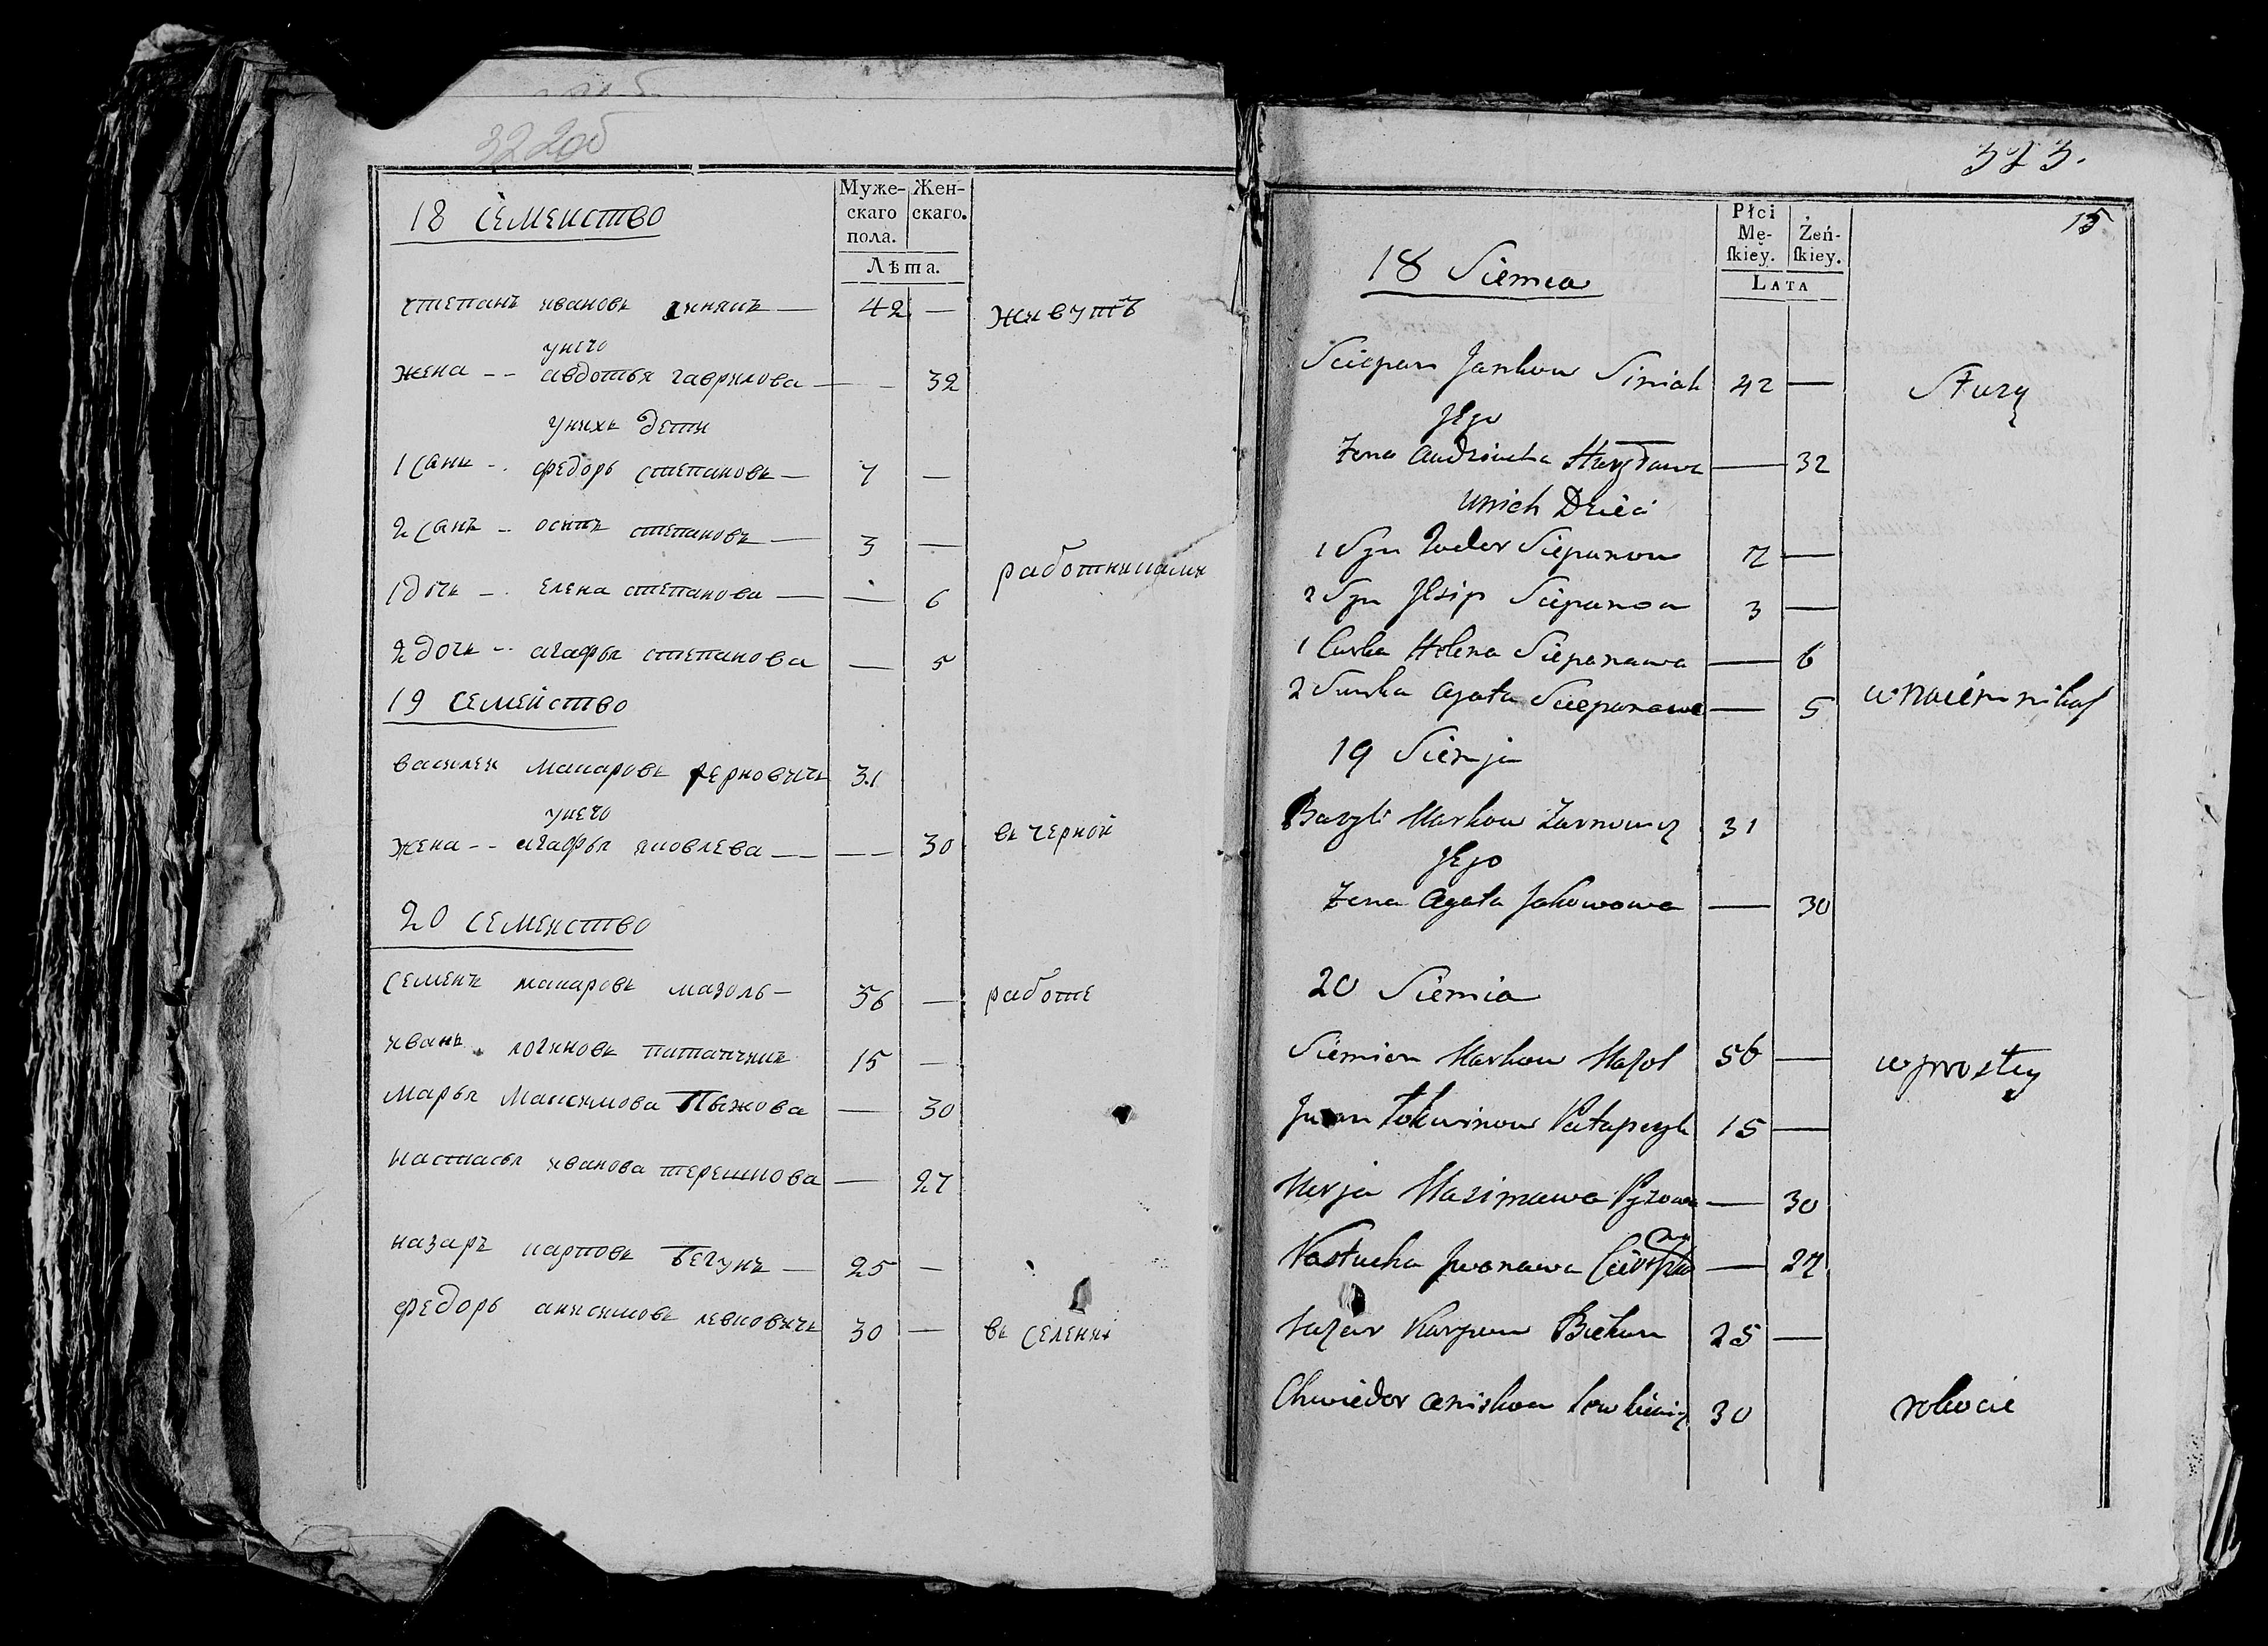 322об
18 семейство
Муже-
скаго
пола.
Жен-
скаго.
Лѣта.
степанъ ивановъ синякъ — 42 — живутъ
унего
жена -- авдотья гаврилова — — 32
унихъ дети
1 сынъ -- федоръ степановъ — 7 —
2 сынъ -- осипъ степановъ — 3 —
работниками
1 дочь -- елена степанова — — 6
2 дочь -- агафья степанова — 5
19 семейство
василеи макаровъ 31
унего
жена -- агафья яковлева — — 30 въ черной
20 семейство
семенъ макаровъ мазоль — 56 — работе
иванъ логиновъ патапчикъ 15 —
марья максимова Пыжова — 30
настасья иванова терешкова — 27
назаръ карповъ Бегунъ — 25 —
федоръ анисимовъ левковичь 30 — въ селении
323.
15
Płci
Mę-
skiey.
Żeń-
skiey.
Lata
18 Siemia
Sciepan Jankow Siniak 42 — Służą
Jego
Żona Audziucha — 32
unich Dzieci
1 Syn Chwedor Sciepanow 7 —
2 Syn Jesip Sciepanow 3 —
1 Curka Helena Sciepanawa — 6
2 Curka Agata Sciepanawa — 5 w naiemnikaf
19 Siemja
Bazyli Markow Żarnowicz 31
Jego
Żona Agata Jakowowa — 30
20 Siemia
Siemion Markow Mazol 56 — w prostey
Juan Łohwinow Patapczyk 15 —
Marja Maximawa Pyżowa — 30
Nastucha Jwanawa — 27
Nazar Karpow Biehun 25 —
Chwiedor Aniskow Lewkiewicz 30 robocie